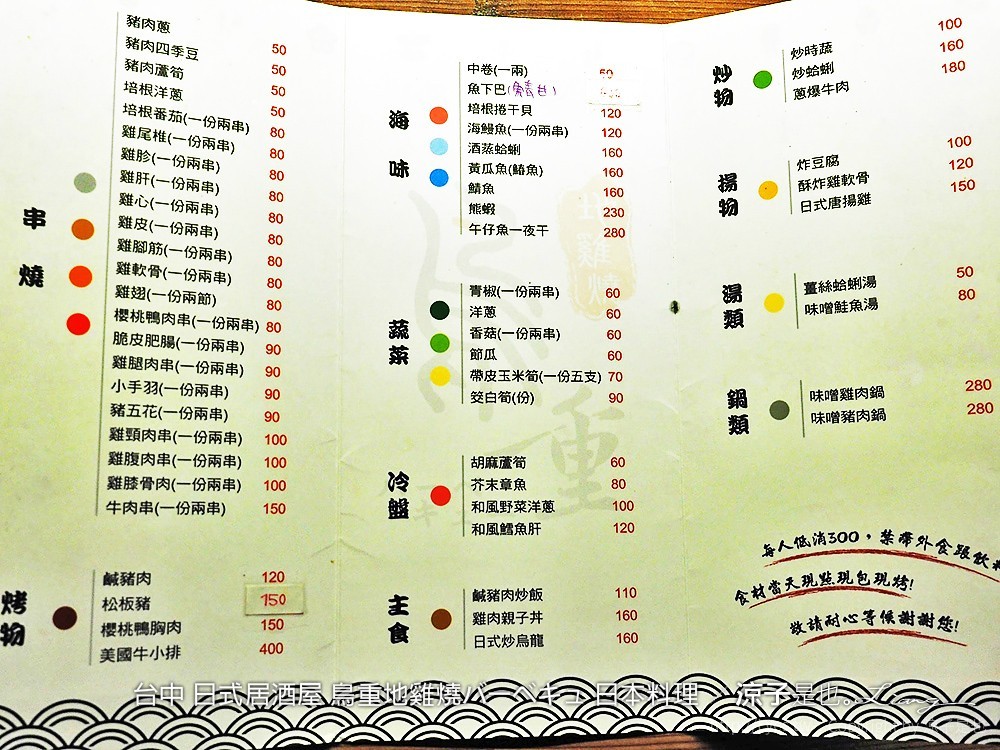 串燒
豬肉蔥 50
豬肉四季豆 50
豬肉蘆筍 50
培根洋蔥 50
培根番茄(一份兩串) 80
雞尾椎(一份兩串) 80
雞胗(一份兩串) 80
雞肝(一份兩串) 80
雞心(一份兩串) 80
雞皮(一份兩串) 80
雞腳筋(一份兩串) 80
雞軟骨(一份兩串) 80
雞翅(一份兩節) 80
櫻桃鴨肉串(一份兩串) 80
脆皮肥腸(一份兩串) 90
雞腿肉串(一份兩串) 90
小手羽(一份兩串) 90
豬五花(一份兩串) 90
雞頸肉串(一份兩串) 100
雞腹肉串(一份兩串) 100
雞膝骨肉(一份兩串) 100
牛肉串(一份兩串) 150
烤物
鹹豬肉 120
松板豬 150
櫻桃鴨胸肉 150
美國牛小排 400
海味
中卷(一兩) 60
魚下巴
培根捲干貝 120
海鰻魚(一份兩串) 120
酒蒸蛤蜊 160
黃瓜魚(鰆魚) 160
鯖魚 160
熊蝦 230
午仔魚一夜干 280
蔬菜
青椒(一份兩串) 60
洋蔥 60
香菇(一份兩串) 60
節瓜 60
帶皮玉米筍(一份五支) 70
筊白筍(份) 90
冷盤
胡麻蘆筍 60
芥末章魚 80
和風野菜洋蔥 100
和風鱈魚肝 120
主食
鹹豬肉炒飯 110
雞肉親子丼 160
日式炒烏龍 160
炒物
炒時蔬 100
炒蛤蜊 160
蔥爆牛肉 180
揚物
炸豆腐 100
酥炸雞軟骨 120
日式唐揚雞 150
湯類
薑絲蛤蜊湯 50
味噌鮭魚湯 80
鍋類
味噌雞肉鍋 280
味噌豬肉鍋 280
每人低消300，禁帶外食跟飲料
食材當天現點現包現烤!
敬請耐心等候謝謝您!
台中 日式居酒屋 鳥重地雞燒バーベキュ 日本料理 涼子是也。